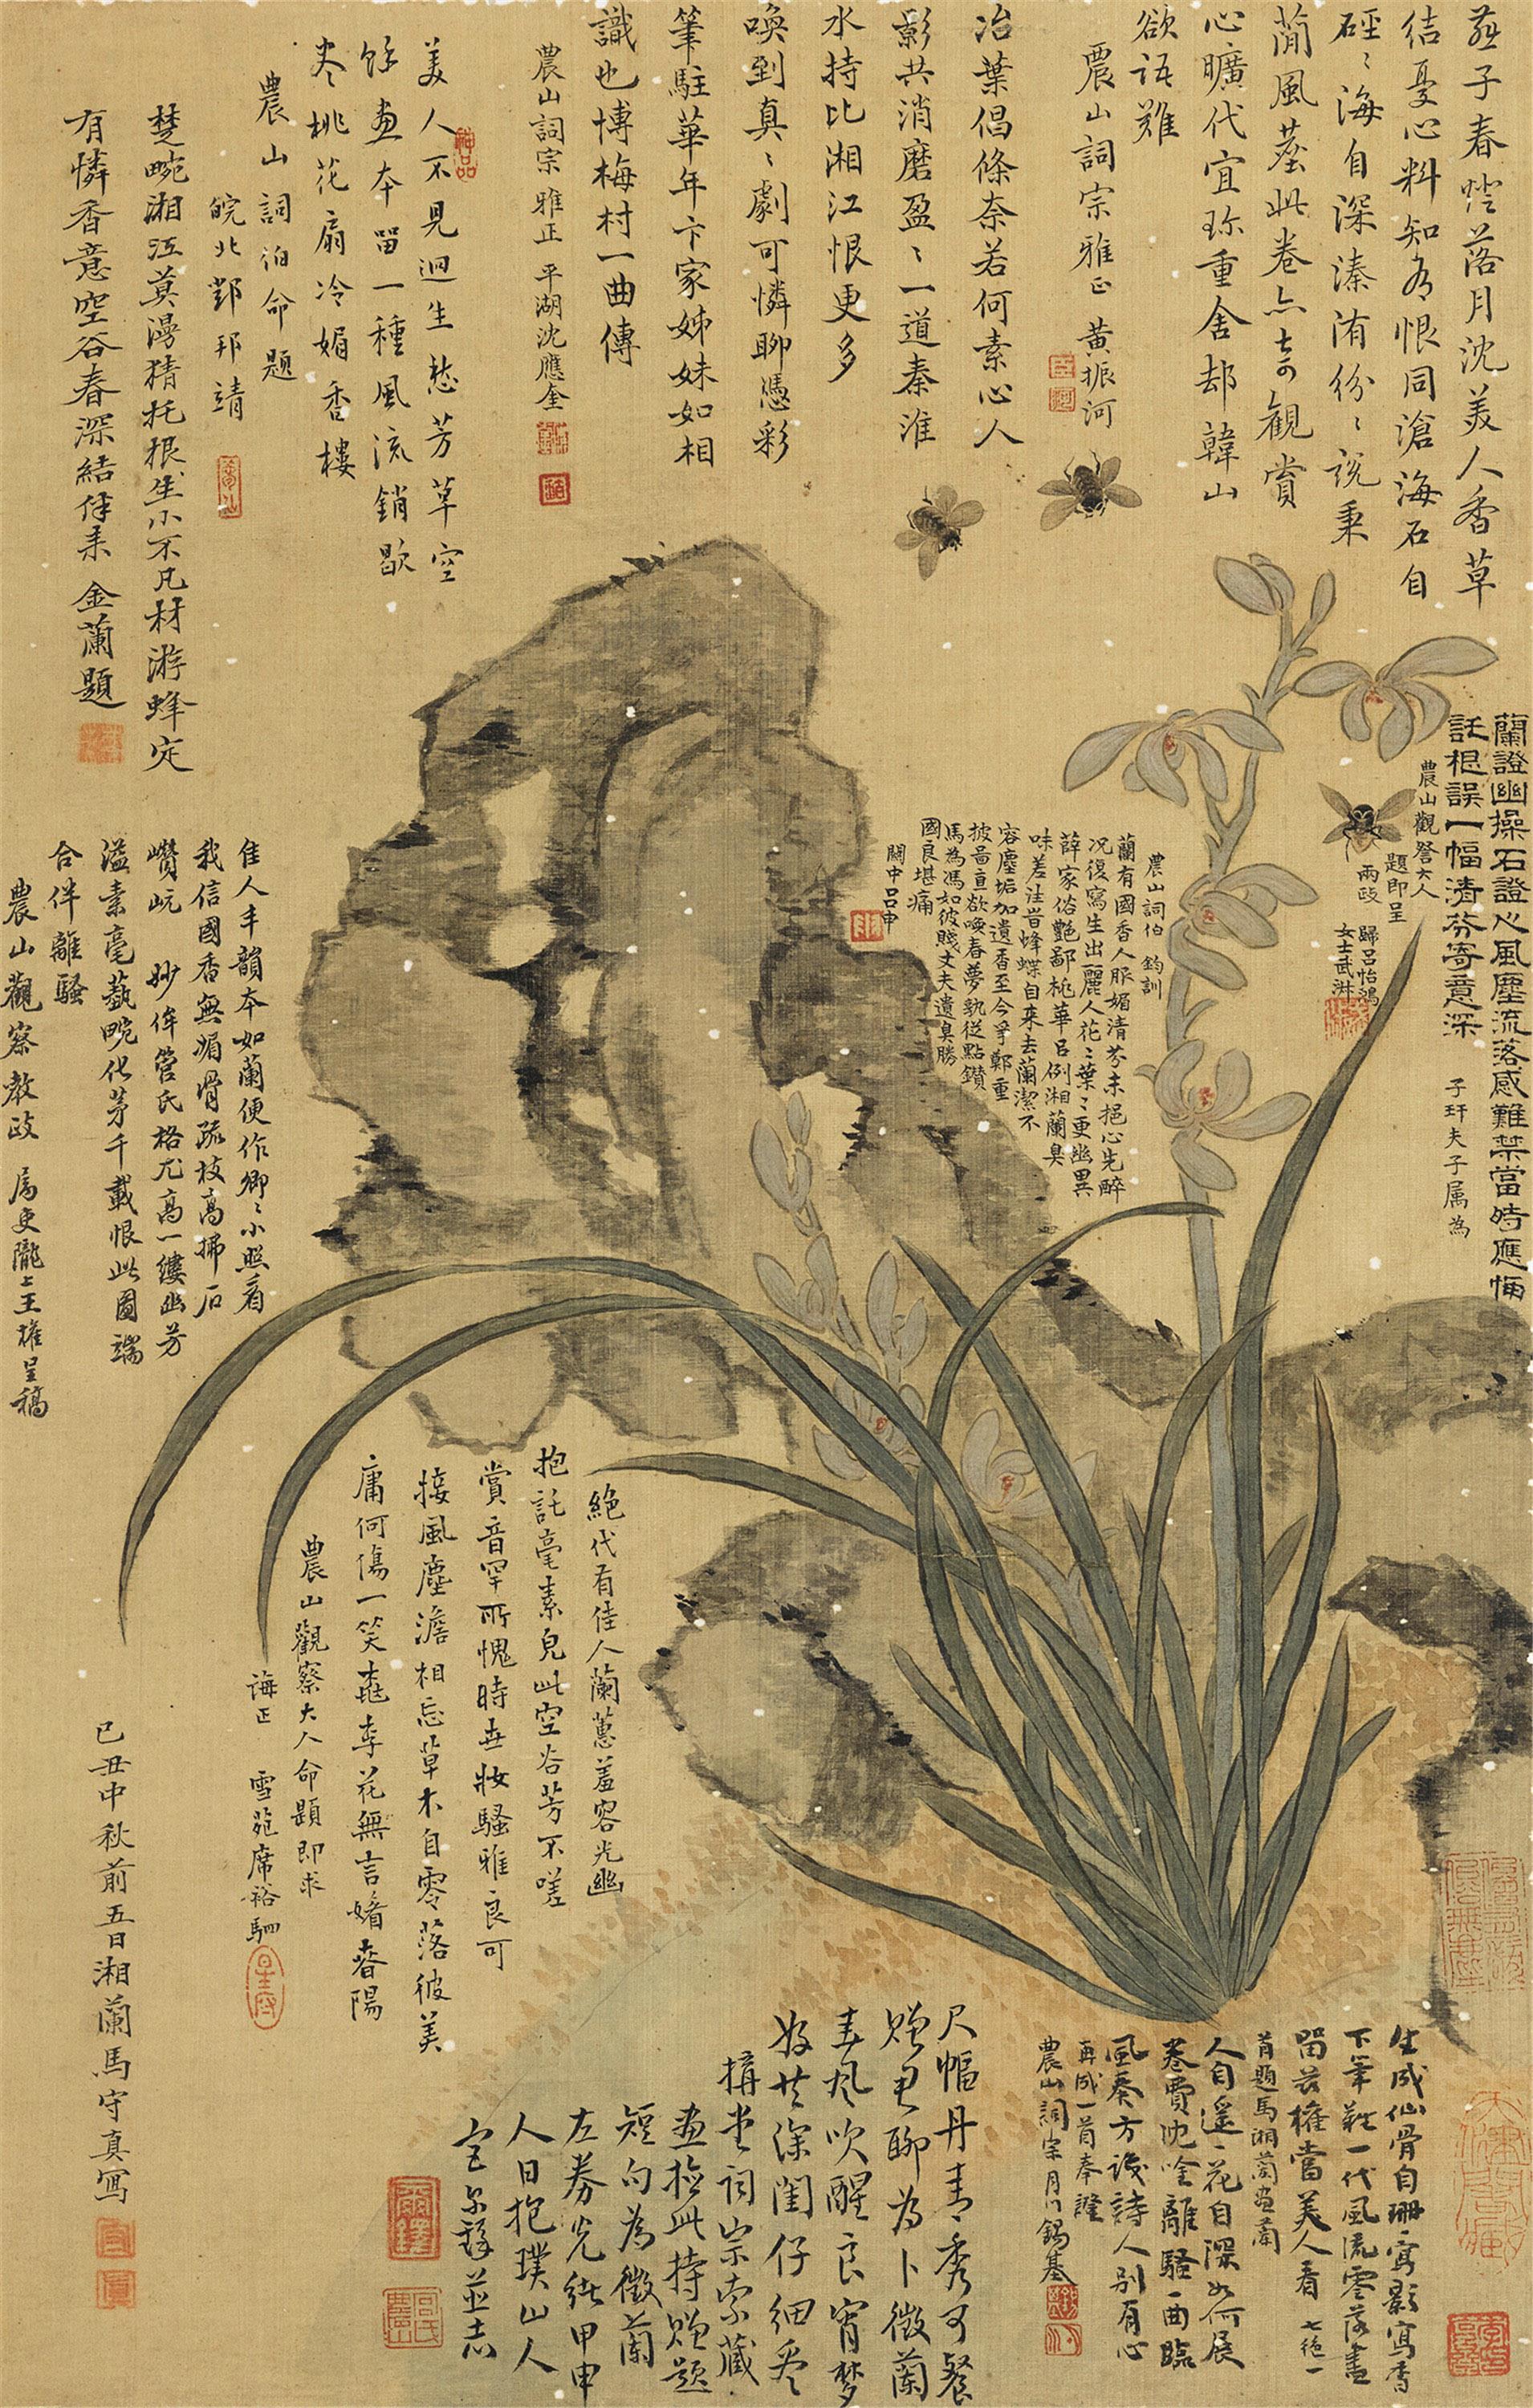 燕子春燈落月沈美人香草
結憂心料知多恨同滄海石自
硜〻海自深溱洧份〻說秉
蕳風塵此卷亦奇觀賞
心曠代宜珍重舍却韓山
欲語難
農山詞宗雅正 黃振河
冶葉倡條奈若何素心人
影共消磨盈〻一道秦淮
水持比湘江恨更多
喚到真〻劇可憐聊憑彩
筆駐華年卞家姊妹如相
識也博梅村一曲傳
農山詞宗雅正 平湖沈應奎
美人不見迴生愁芳草空
餘畫本留一種風流銷歇
盡桃花扇冷媚香樓
農山詞伯命題
皖北鄧邦靖
楚畹湘江莫漫猜托根生小不凡材游蜂定
有憐香意空谷春深結伴来 金蘭題
神品
蘭證幽操石證心風塵流落感難禁當時應悔
託根誤一幅清芬寄意深
子玕夫子屬為
農山觀詧大人
題即呈
兩政
歸呂怡鴻
女士武淋
農山詞伯 鈞訓
蘭有國香人服媚清芬未挹心先醉
况復寫生出麗人花〻葉〻更幽異
薛家俗艷鄙桃華呂例湘蘭臭
味差注昔蜂蝶自来去蘭潔不
容塵垢加遺香至今爭鄭重
披啚直欲喚春夢孰從點鑚
馬為馮如彼賤丈夫遺臭勝
國良堪痛
關中呂申
佳人丰韻本如蘭便作卿〻小照看
我信國香無媚骨疏枝高拂石
巑岏 妙侔管氏格尤高一縷幽芳
溢素毫蓺畹化茅千載恨此圖端
合伴離騷
農山觀察教政 屬吏隴上王權呈稿
絕代有佳人蘭蕙羞容光幽
抱託毫素見此空谷芳不嗟
賞音罕所愧時世妝騷雅良可
接風塵澹相忘草木自零落彼美
庸何傷一笑桃李花無言媚春陽
農山觀察大人命題即求
誨正 雪苑席裕駟
己丑中秋前五日湘蘭馬守真寫
生成仙骨自珊〻寫影寫香
下筆難一代風流零落盡
留茲權當美人看 七絕一
首題馬湘蘭畫蘭
人自遥〻花自深如何展
卷費沈唫離騷一曲臨
風奏方識詩人別有心
再成一首奉證
農山詞宗月川錫基
尺幅丹青〻秀可餐
贈君聊為卜徵蘭
東風吹醒良宵夢
好共深閨仔細看
搆堂詞宗索藏
畫檢此持贈題
短句為徵蘭
左券光緒甲申
人日抱璞山人
宫爾鐸並志